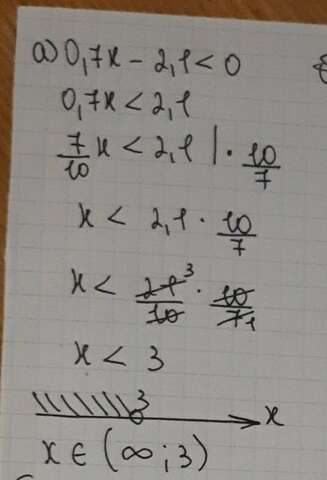 a) 0,7x − 2,1 < 0
0,7x < 2,1
7/10 x < 2,1 | · 10/7
x < 2,1 · 10/7
x < 21/10 ³ · 10/7 ₁
x < 3
3 x
x ∈ (∞; 3)